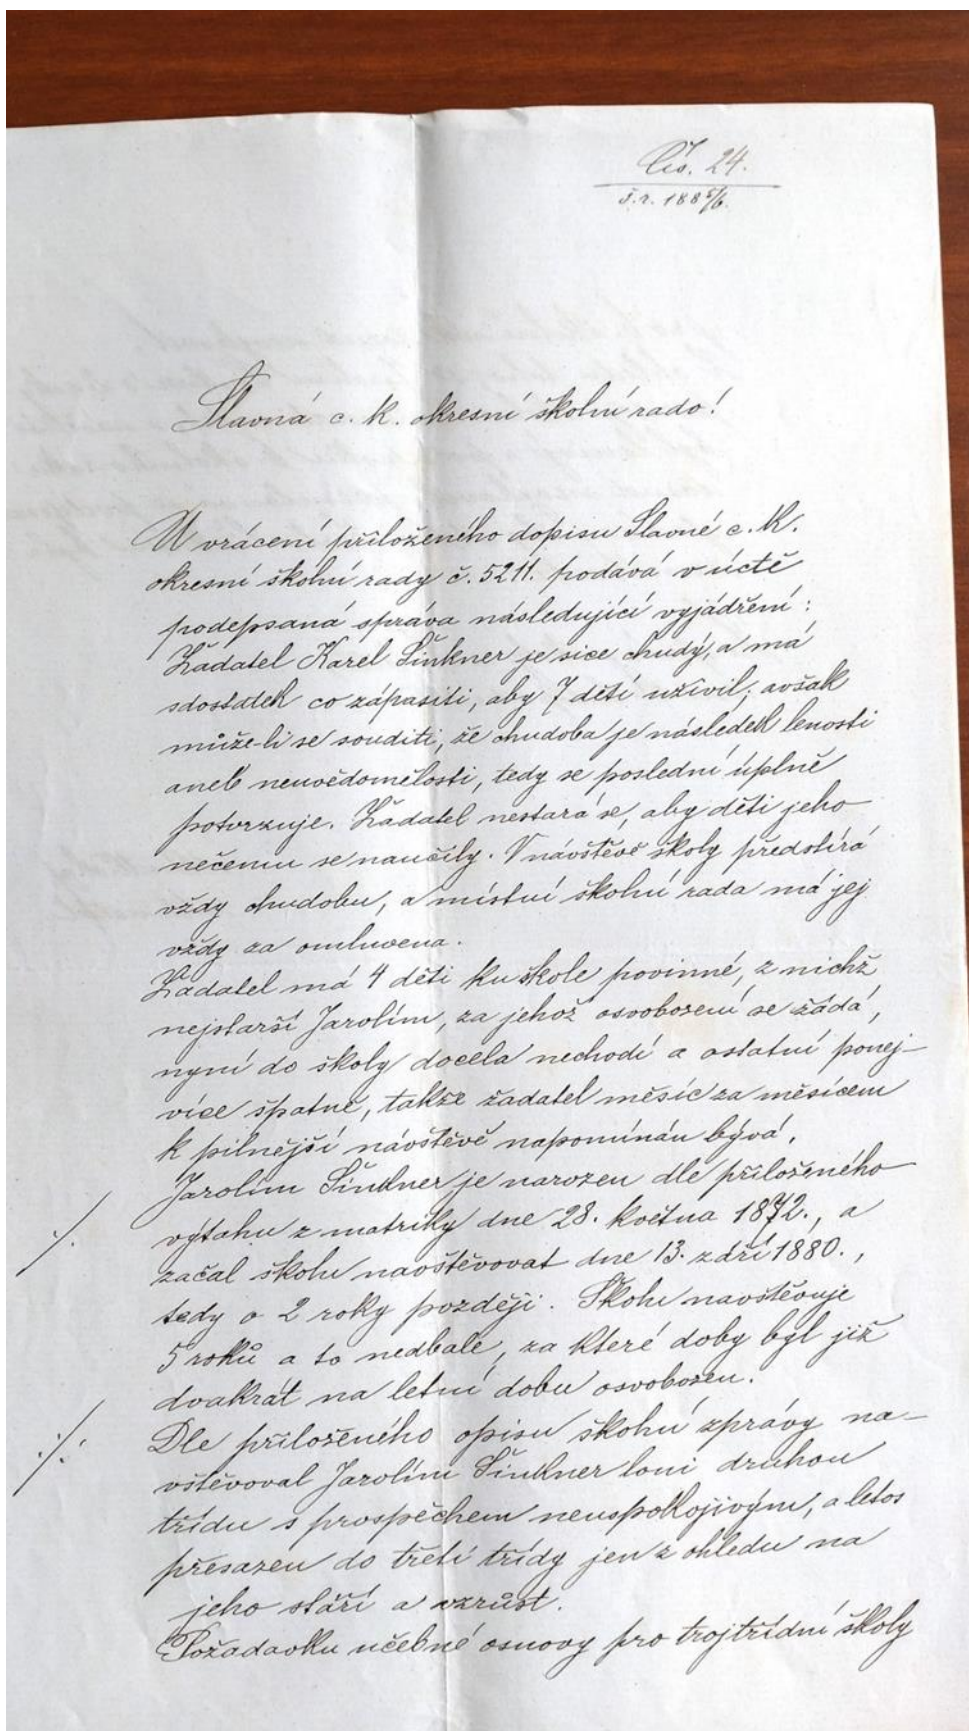 Čís. 24.
š. r. 1885/6.
Slavná c. k. okresní školní rado!
U vrácení přiloženého dopisu Slavné c. k.
okresní školní rady č. 5211. podává v úctě
podepsaná správa následující vyjádření:
Žadatel Karel Šinkner je sice chudý, a má
sdostatek co zápasiti, aby 7 dětí uživil; avšak
může-li se souditi, že chudoba je následek lenosti
aneb neuvědomělosti, tedy se poslední úplně
potvrzuje. Žadatel nestará se, aby děti jeho
něčemu se naučily. V návštěvě školy předstírá
vždy chudobu, a místní školní rada má jej
vždy za omluvena.
Žadatel má 4 děti ku škole povinné, z nichž
nejstarší Jarolím, za jehož osvobození se žádá,
nyní do školy docela nechodí a ostatní ponej-
více špatně, takže žadatel měsíc za měsícem
k pilnější návštěvě napomínán bývá.
Jarolím Šinkner je narozen dle přiloženého
./. výtahu z matriky dne 28. května 1872., a
začal školu navštěvovat dne 13. září 1880.,
tedy o 2 roky později. Školu navštěvuje
5 roků a to nedbale, za které doby byl již
dvakrát na letní dobu osvobozen.
./: Dle přiloženého opisu školní zprávy na-
vštěvoval Jarolím Šinkner loni druhou
třídu s prospěchem neuspokojivým, a letos
přesazen do třetí třídy jen z ohledu na
jeho stáří a vzrůst.
Požadavku učebné osnovy pro trojtřídní školy